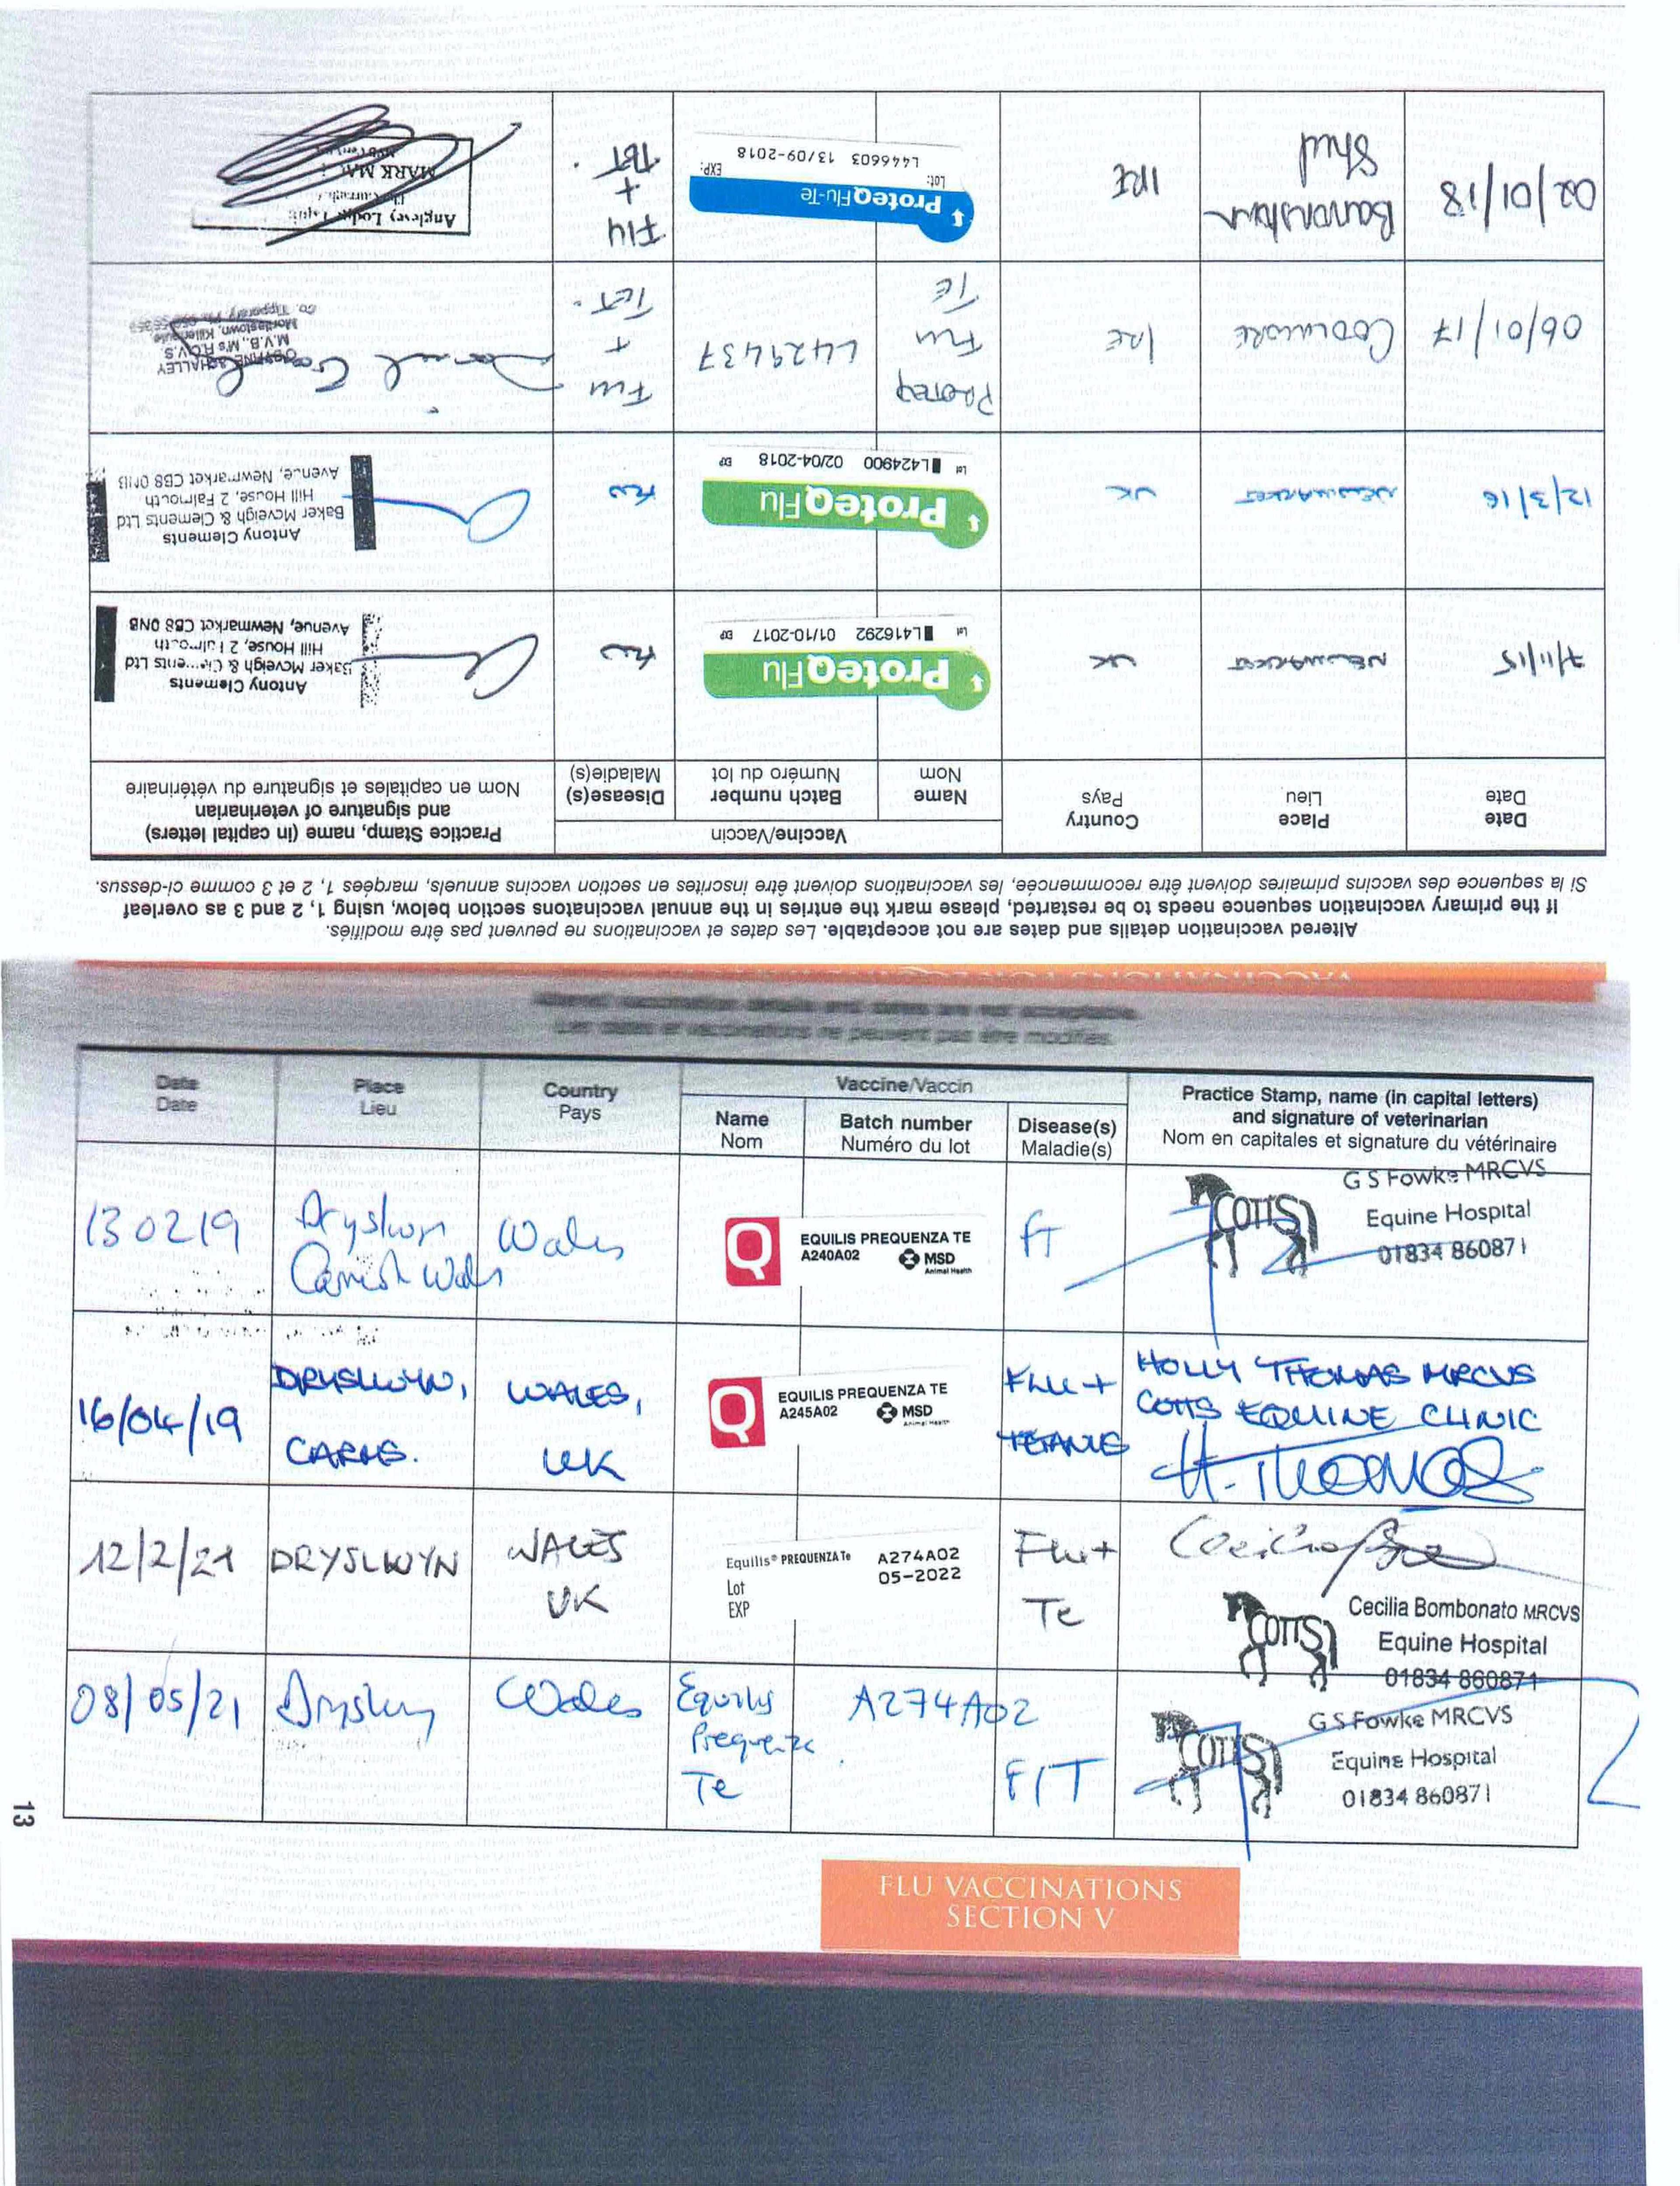 VACCINATIONS FOR EQUINE
Altered vaccination details and dates are not acceptable. Les dates et vaccinations ne peuvent pas être modifiés.
If the primary vaccination sequence needs to be restarted, please mark the entries in the annual vaccinatons section below, using 1, 2 and 3 as overleaf
Si la sequence des vaccins primaires doivent être recommencée, les vaccinations doivent être inscrites en section vaccins annuels, marqées 1, 2 et 3 comme ci-dessus.
Date
Date
Place
Lieu
Country
Pays
Vaccine/Vaccin
Name
Nom
Batch number
Numéro du lot
Disease(s)
Maladie(s)
Practice Stamp, name (in capital letters)
and signature of veterinarian
Nom en capitales et signature du vétérinaire
7/11/15
NEWMARKET
UK
ProteqFlu
Lot L416292 01/10-2017 EXP
FLU
Antony Clements
Baker Mcveigh & Clements Ltd
Hill House, 2 Falmouth
Avenue, Newmarket CB8 0NB
12/3/16
NEWMARKET
UK
ProteqFlu
Lot L424900 02/04-2018 EXP
FLU
Antony Clements
Baker Mcveigh & Clements Ltd
Hill House, 2 Falmouth
Avenue, Newmarket CB8 0NB
06/01/17
COOLMORE
IRE
PROTEQ
FLU
TE
L429437
FLU
+
TET.
HALLEY
M.V.B., M's R.C.V.S
Co. Tipperary
02/01/18
Stud
IRE
ProteqFlu-Te
Lot: L446603 13/09-2018 EXP:
Flu
+
TET.
Anglesey Lodge
MARK
Altered vaccination details and dates are not acceptable.
Les dates et vaccinations ne peuvent pas être modifiés.
Date
Date
Place
Lieu
Country
Pays
Vaccine/Vaccin
Name
Nom
Batch number
Numéro du lot
Disease(s)
Maladie(s)
Practice Stamp, name (in capital letters)
and signature of veterinarian
Nom en capitales et signature du vétérinaire
130219
Wales
Q
EQUILIS PREQUENZA TE
A240A02 MSD
Animal Health
FT
COTTS
G S Fowke MRCVS
Equine Hospital
01834 860871
16/04/19
DRYSLWYN,
CARMS.
WALES,
UK
Q
EQUILIS PREQUENZA TE
A245A02 MSD
Animal Health
FLU +
TETANUS
HOLLY THOMAS MRCVS
COTTS EQUINE CLINIC
H. THOMAS
12/2/21
DRYSLWYN
WALES
UK
Equilis® PREQUENZA Te A274A02
Lot 05-2022
EXP
Flu+
Te
COTTS
Cecilia Bombonato MRCVS
Equine Hospital
01834 860871
08/05/21
Wales
Equilis
Prequenza
Te
A274A02
F/T
COTTS
G S Fowke MRCVS
Equine Hospital
01834 860871
13
FLU VACCINATIONS
SECTION V